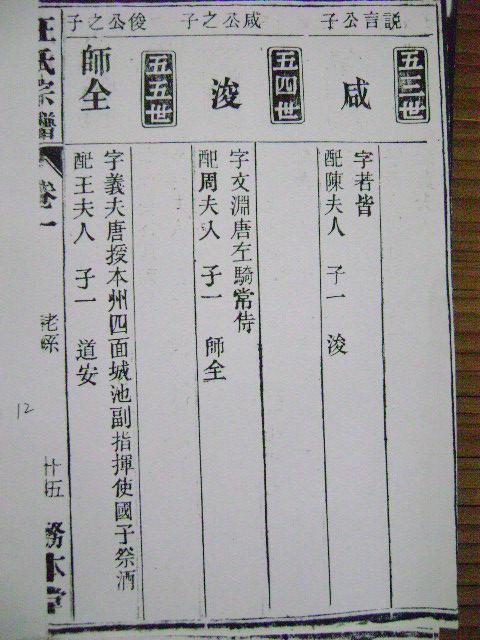 説言公子
五三世
咸
字若皆
配陳夫人 子一 浚
咸公之子
五四世
浚
字文淵唐左騎常侍
配周夫人 子一 師全
俊公之子
五五世
師全
字義夫唐授本州四面城池副指揮使國子祭酒
配王夫人 子一 道安
汪氏宗譜 卷一 老系 廿五 務本堂
12